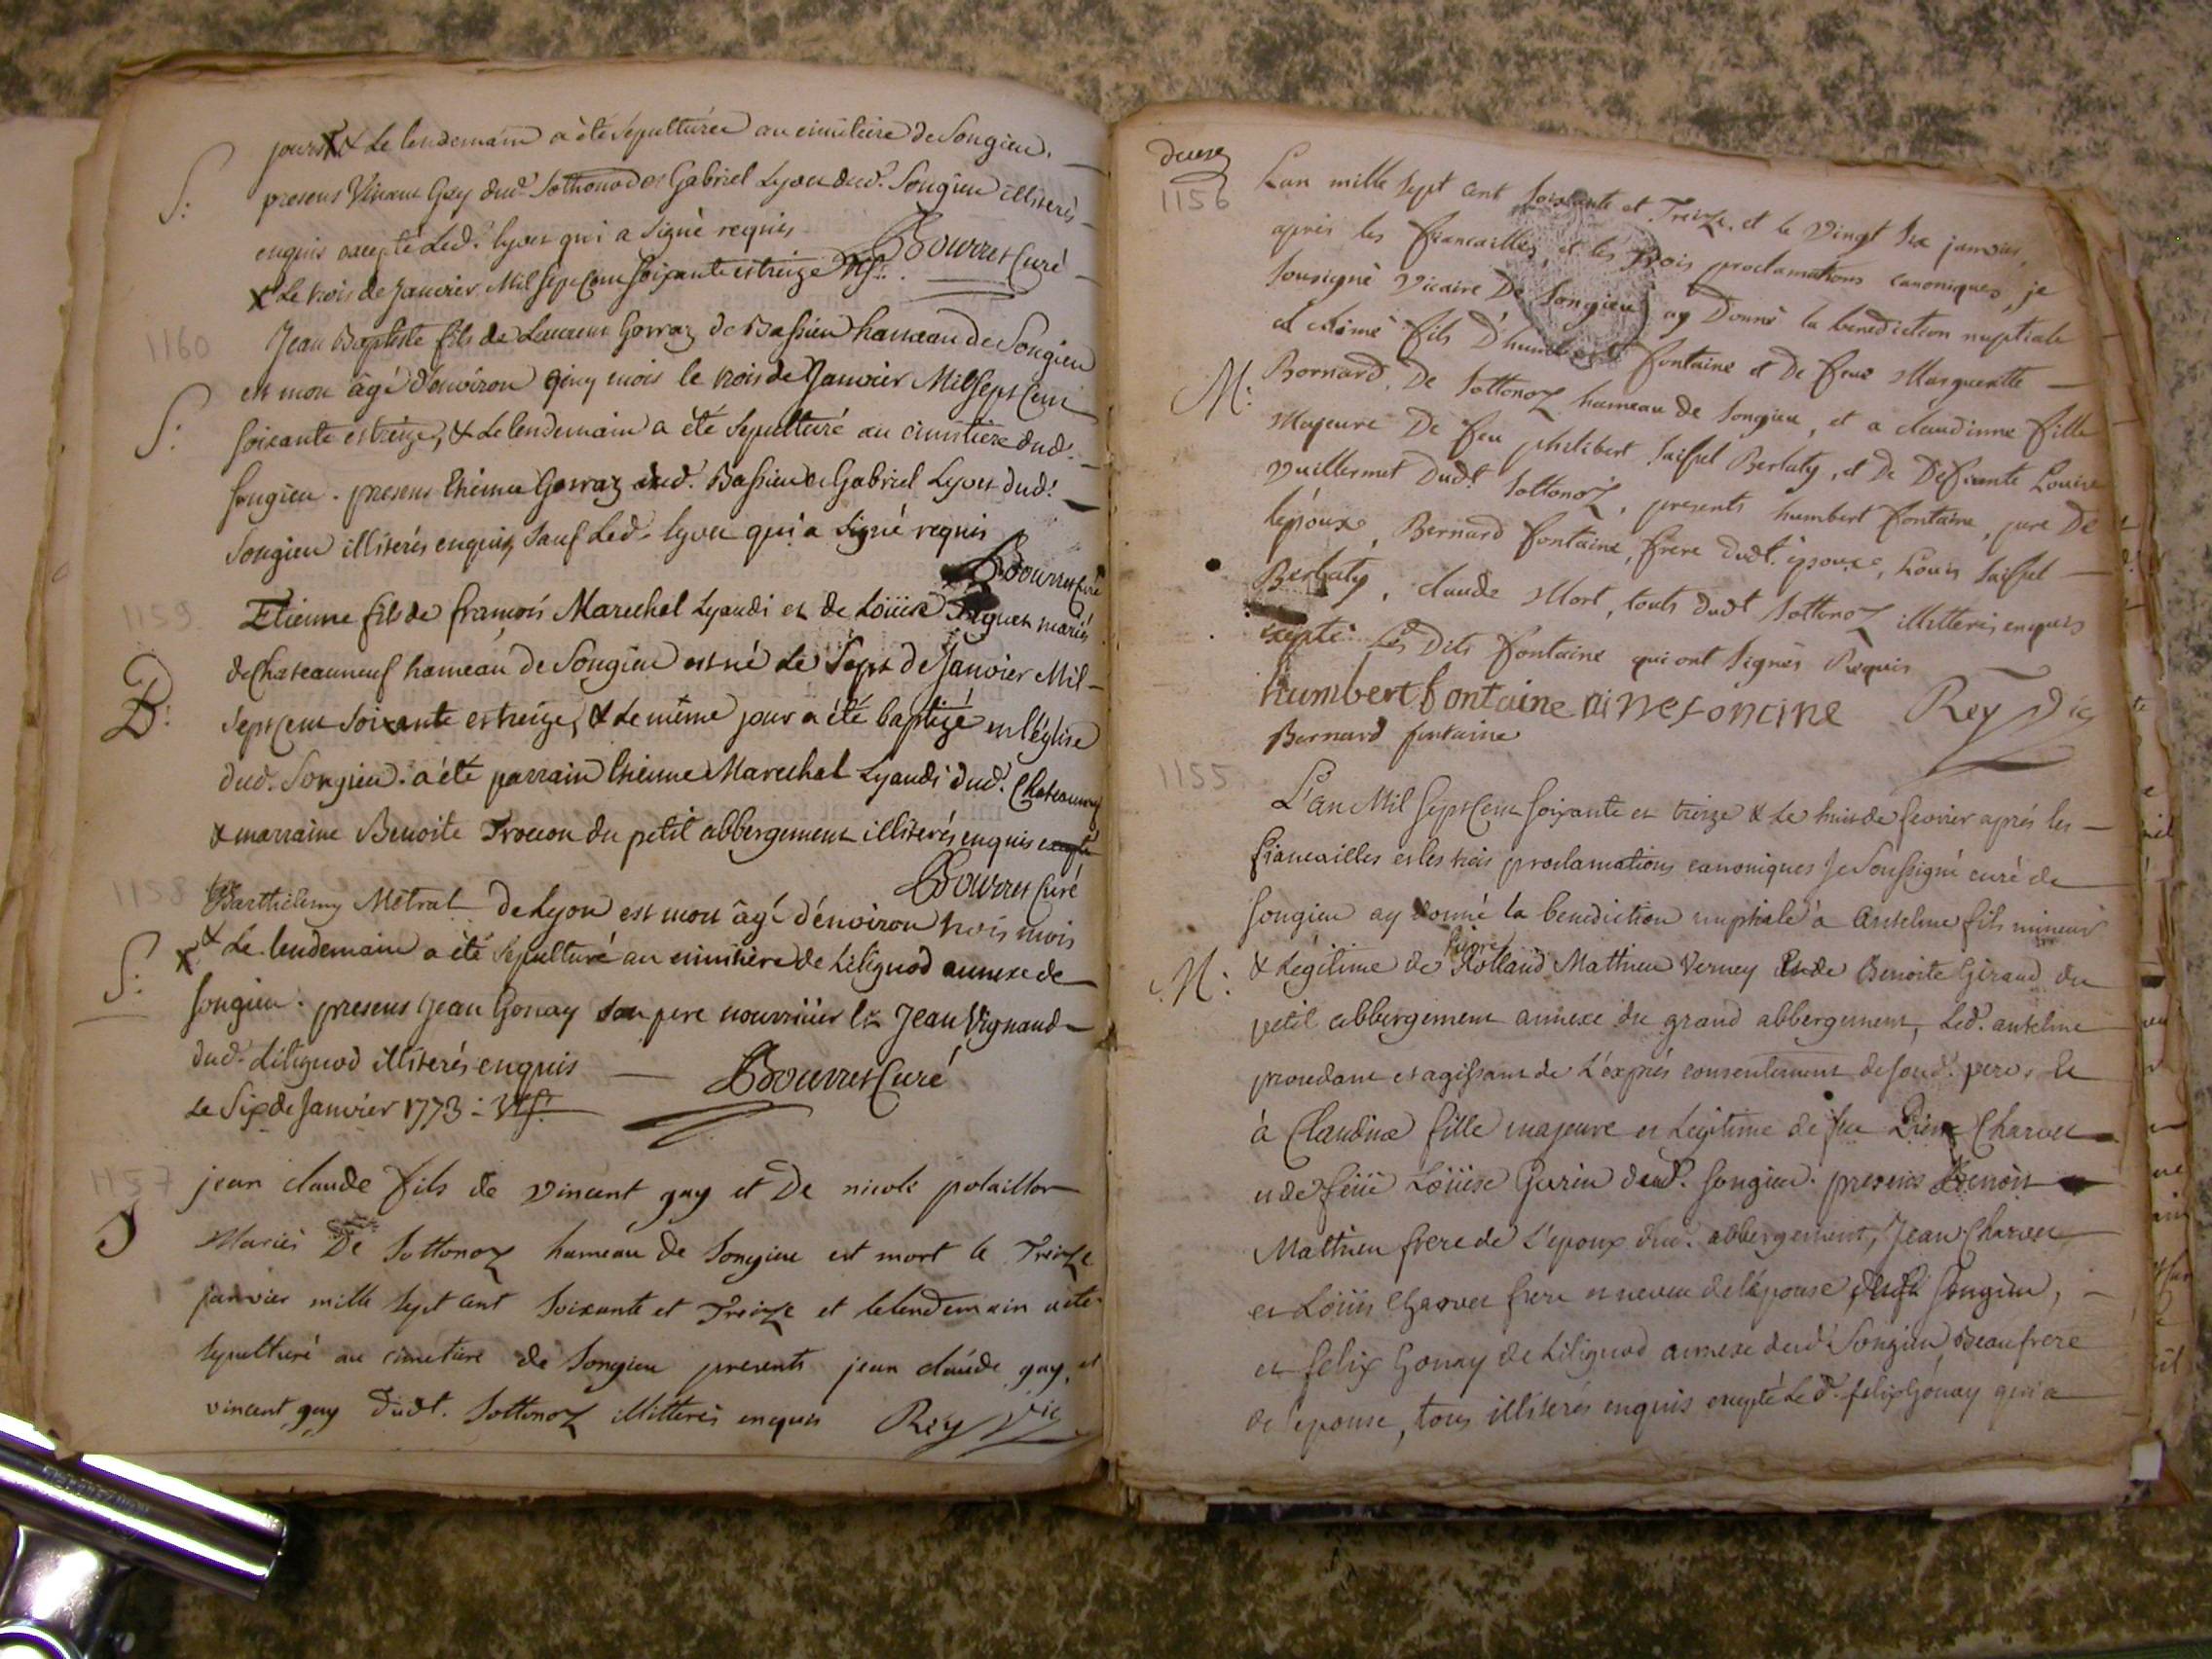 jours X & le lendemain a été sépulturée au cimitiere de Songieu.
S:
presens Vincent Gay dud. Sothonod et Gabriel Lyvet dud. Songieu illiterés
enquis excepté Led. lyvet qui a signé requis
Bourret Curé
X Le trois de Janvier Mil Sept Cent soixante et treize
1160
Jean Baptiste fils de Laurent Gorraz de Bassieu hameau de Songieu
est mort âgé d'environ cinq mois le trois de Janvier Mil Sept Cent
S:
soixante et treize, & le lendemain a été sépulturé au cimitiere dud.
Songieu. presens Etienne Gorraz dud. Bassieu et Gabriel Lyvet dud.
Songieu illiterés enquis, sauf Led. lyvet qui a signé requis
Bourret Curé
1159
Etienne fils de françois Marechal Lyaudi et de Loüise mariés
de Chateauneuf hameau de Songieu est né le Sept de Janvier Mil
B:
Sept Cent soixante et treize, & le même jour a été baptizé en l'église
dud. Songieu. a été parrain Etienne Marechal Lyaudi dud. Chateauneuf
& marraine Benoite Trocon du petit abbergement illiterés enquis excepté
Bourret Curé
1158
Barthélemy Métral de Lyon est mort âgé d'environ trois mois
S:
X & Le lendemain a été sépulturé au cimitiere de Lilignod annexe de
Songieu. presens Jean Gonay son pere nourricier & Jean Vignand
dud. Lilignod illiterés enquis
Bourret Curé
Le Six de Janvier 1773
1157
jean claude fils de vincent gay et De nicole polaillon
S
Mariés De Sottonoz hameau de Songieu est mort le Treize
janvier mille sept cent soixante et Treize et le lendemain a été
sepulturé au cimetiere de Songieu presents jean claude gay, et
vincent gay dudt. Sottonoz illitterés enquis Rey Vic
deuse
1156
L'an mille sept cent soixante et Treize, et le vingt six janvier,
après les fiancailles, et les trois proclamations canoniques, je
sousigné vicaire De Songieu ay Donné la benediction nuptiale
a Aimé fils D'humbert fontaine et De feue Marguerite
M:
Bornard, De Sottonoz hameau de Songieu, et a claudinne fille
Majeure De feu philibert Saissel Berlaty, et De Defunte Louise
vuillermet Dudt Sottonoz, presents humbert fontaine, pere De
l'époux, Bernard fontaine, frere dudt. époux, Louis Saissel
Berlaty, claude Mort, touts dudt Sottonoz illitterés enquis
excepté Les Dits fontaine qui ont signés Requis
humbert fontaine Rey Vic
Bernard fontaine
1155
L'an Mil Sept Cent soixante et treize & le huit de fevrier après les
fiancailles et les trois proclamations canoniques Je Soussigné curé de
Songieu ay donné la benediction nuptiale à Anselme fils mineur
M:
& Légitime de Rolland Matthieu Verney et de Benoite Giraud du
petit abbergement annexe du grand abbergement, Led. anselme
procedant et agissant de l'exprés consentement de son d. pere, et
à Claudine fille majeure et Légitime de feu Charvet
et de feüe Loüise Gurin dud. Songieu. presens Benoit
Matthieu frere de L'epoux dud. abbergement, Jean Charvet
et Loüis Charvet frere et neveu de l'épouse dud. Songieu,
et felix Gonay de Lilignod annexe dud. Songieu beaufrere
de l'epouse, tous illiterés enquis excepté Led. felix Gonay qui a